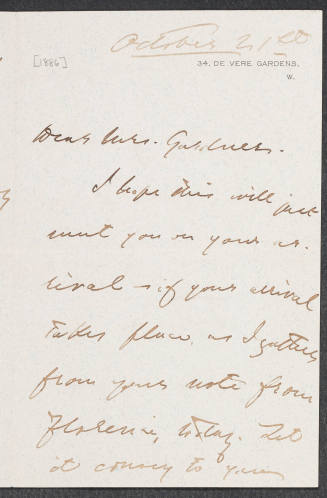 October 21st
[1886]
34, DE VERE GARDENS,
W.
Dear Mrs. Gardner.
I hope this will just
meet you on your ar-
rival - if your arrival
takes place, as I gather
from your note from
Florence, today. Let
it convey to you